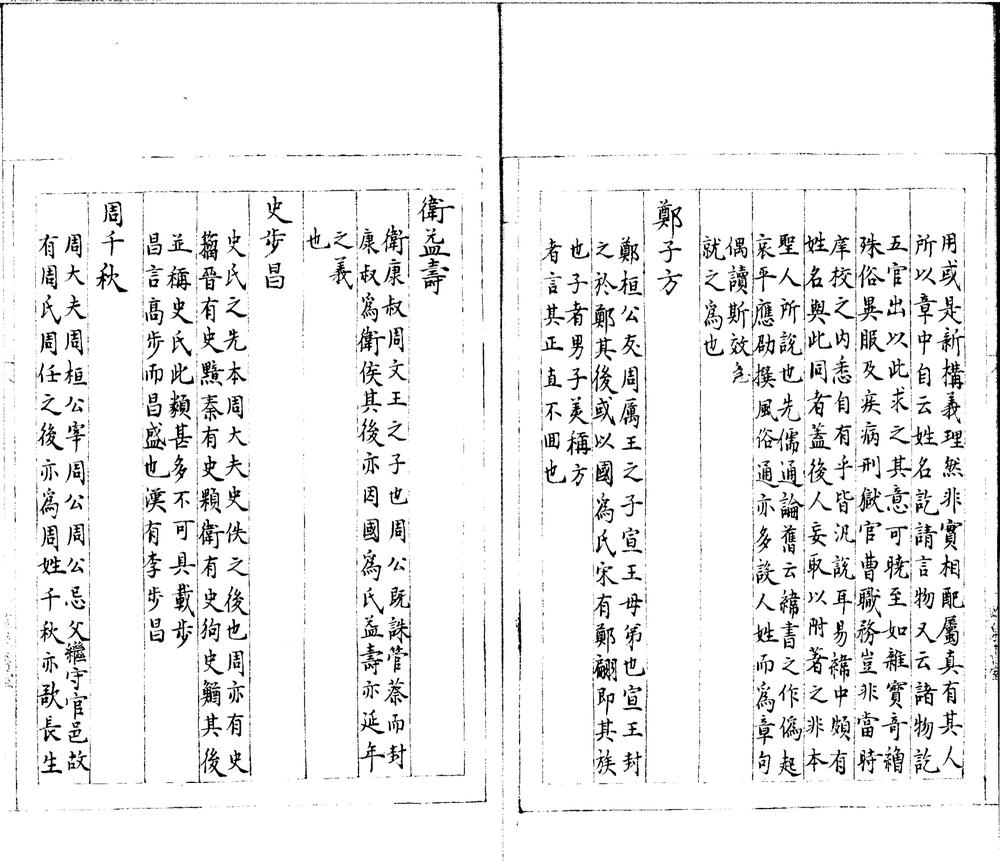 用或是新構義理然非實相配屬真有其人
所以章中自云姓名訖請言物又云諸物訖
五官出以此求之其意可曉至如雜寶奇繒
殊俗異服及疾病刑獄官曹職務豈非當時
庠校之内悉自有乎皆汎說耳易緯中頗有
姓名與此同者蓋後人妄取以附著之非本
聖人所說也先儒通論舊云緯書之作僞起
哀平應劭撰風俗通亦多設人姓而爲章句
偶讀斯效
就之爲也
鄭子方
鄭桓公友周厲王之子宣王母弟也宣王封
之於鄭其後或以國爲氏宋有鄭翩即其族
也子者男子美稱方
者言其正直不囬也
衛益壽
衛康叔周文王之子也周公既誅管蔡而封
康叔爲衛侯其後亦因國爲氏益壽亦延年
之義
也
史步昌
史氏之先本周大夫史佚之後也周亦有史
籀晉有史黯秦有史顆衛有史狗史鰌其後
並稱史氏此類甚多不可具載步
昌言高步而昌盛也漢有李步昌
周千秋
周大夫周桓公宰周公周公忌父繼守官邑故
有周氏周任之後亦爲周姓千秋亦歃長生